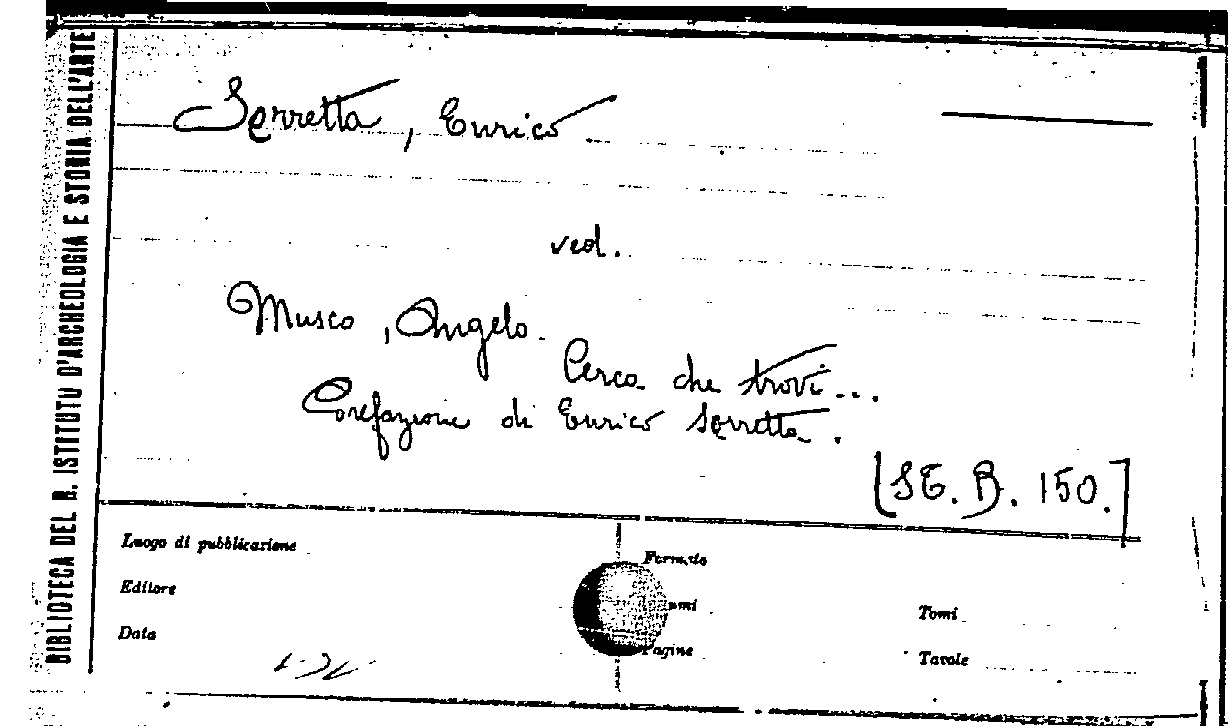 BIBLIOTECA DEL R. ISTITUTO D'ARCHEOLOGIA E STORIA DELL'ARTE
Serretta, Enrico
ved.
Musco, Angelo.
Cerca che trovi...
Prefazione di Enrico Serretta.
[SE. B. 150.]
Luogo di pubblicazione
Formato
Editore
Tomi
Data
Pagine
Tavole